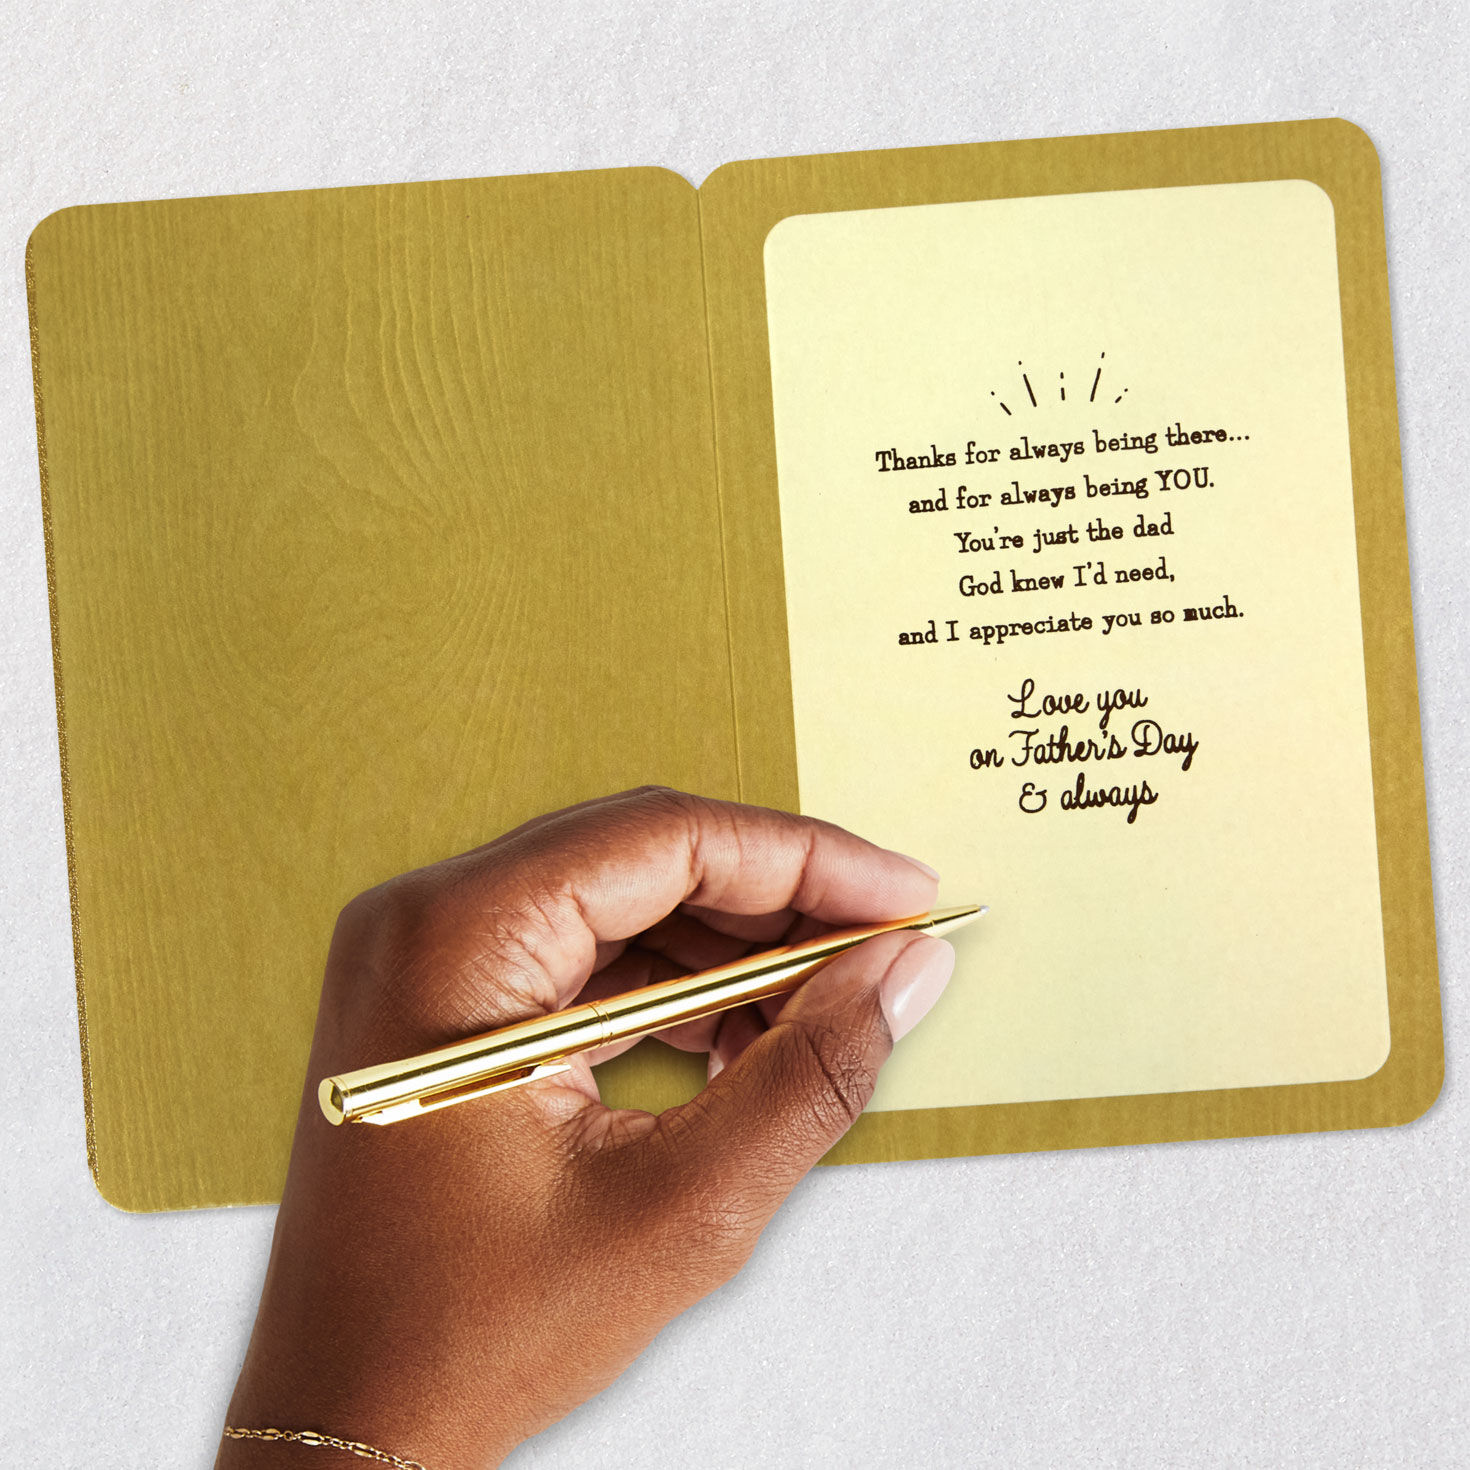 Thanks for always being there...
and for always being YOU.
You're just the dad
God knew I'd need,
and I appreciate you so much.
Love you
on Father's Day
& always